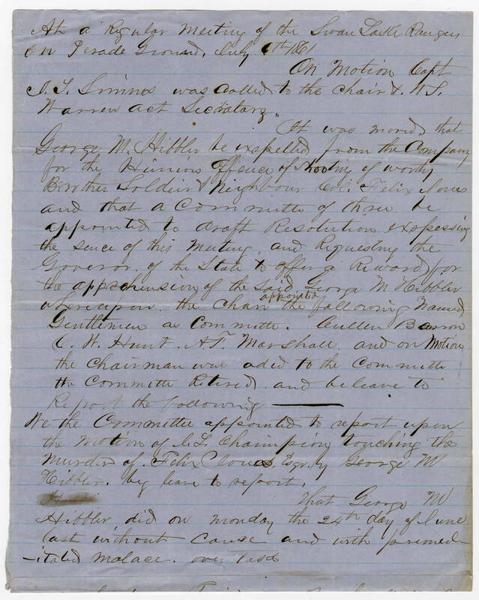 At a Regular Meeting of the Swan Lake Rangers
on Perade Ground, July 6th 1861
On Motion Capt
J. L. Simms was called to the Chair & W S.
Warren act Secretary.
It was moved that
George M. Hibbler be expelled from the Company
for the Hinious offence of shooting of worthy
Brother Soldier & Neighbour Felix
and that a Committe of three be
appointed to draft Resolution expessing
the sence of this Meeting and Requesting the
Governor of the State to offer a Reward for
the apprehension of the said George M Hibbler
whereupon the Chair appointed the following Named
Gentlemen as Committe. Cullen
C. W. Hunt A.F. Marshall and on Motion
the Chairman was aded to the Committe
the Committe Retired and be leave to
Report the following
We the Committee appointed to report upon
the Motion of Champion touching the
Murder of Felix Esqr by George M
Hibbler. beg leave to report.
That George M
Hibbler did on monday the 24th day of June
last without cause and with premed
-itated malace.